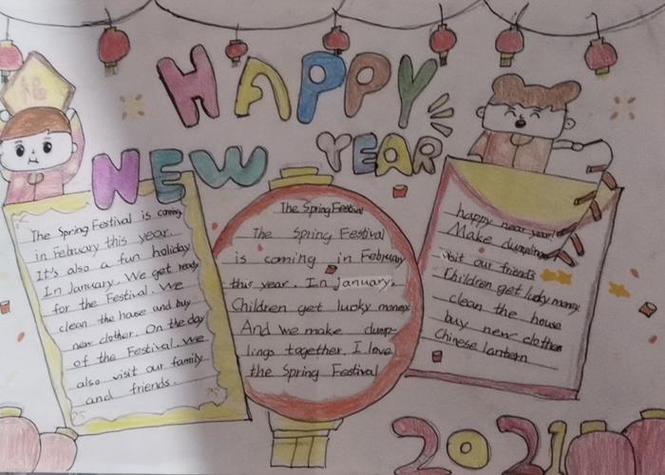 福
HAPPY
NEW YEAR
The Spring Festival is coming
in February this year.
It's also a fun holiday
In January. We get ready
for the Festival. We
clean the house and buy
new clother. On the day
of the Festival. We
also visit our family
and friends.
The Spring Festival
The Spring Festival
is coming in February
this year. In January,
Children get lucky money
And we make dump-
lings together. I love
the Spring Festival
happy new year!
Make dumplings
visit our friends
Children get lucky money
clean the house
buy new clothes
Chinese lantern
2021